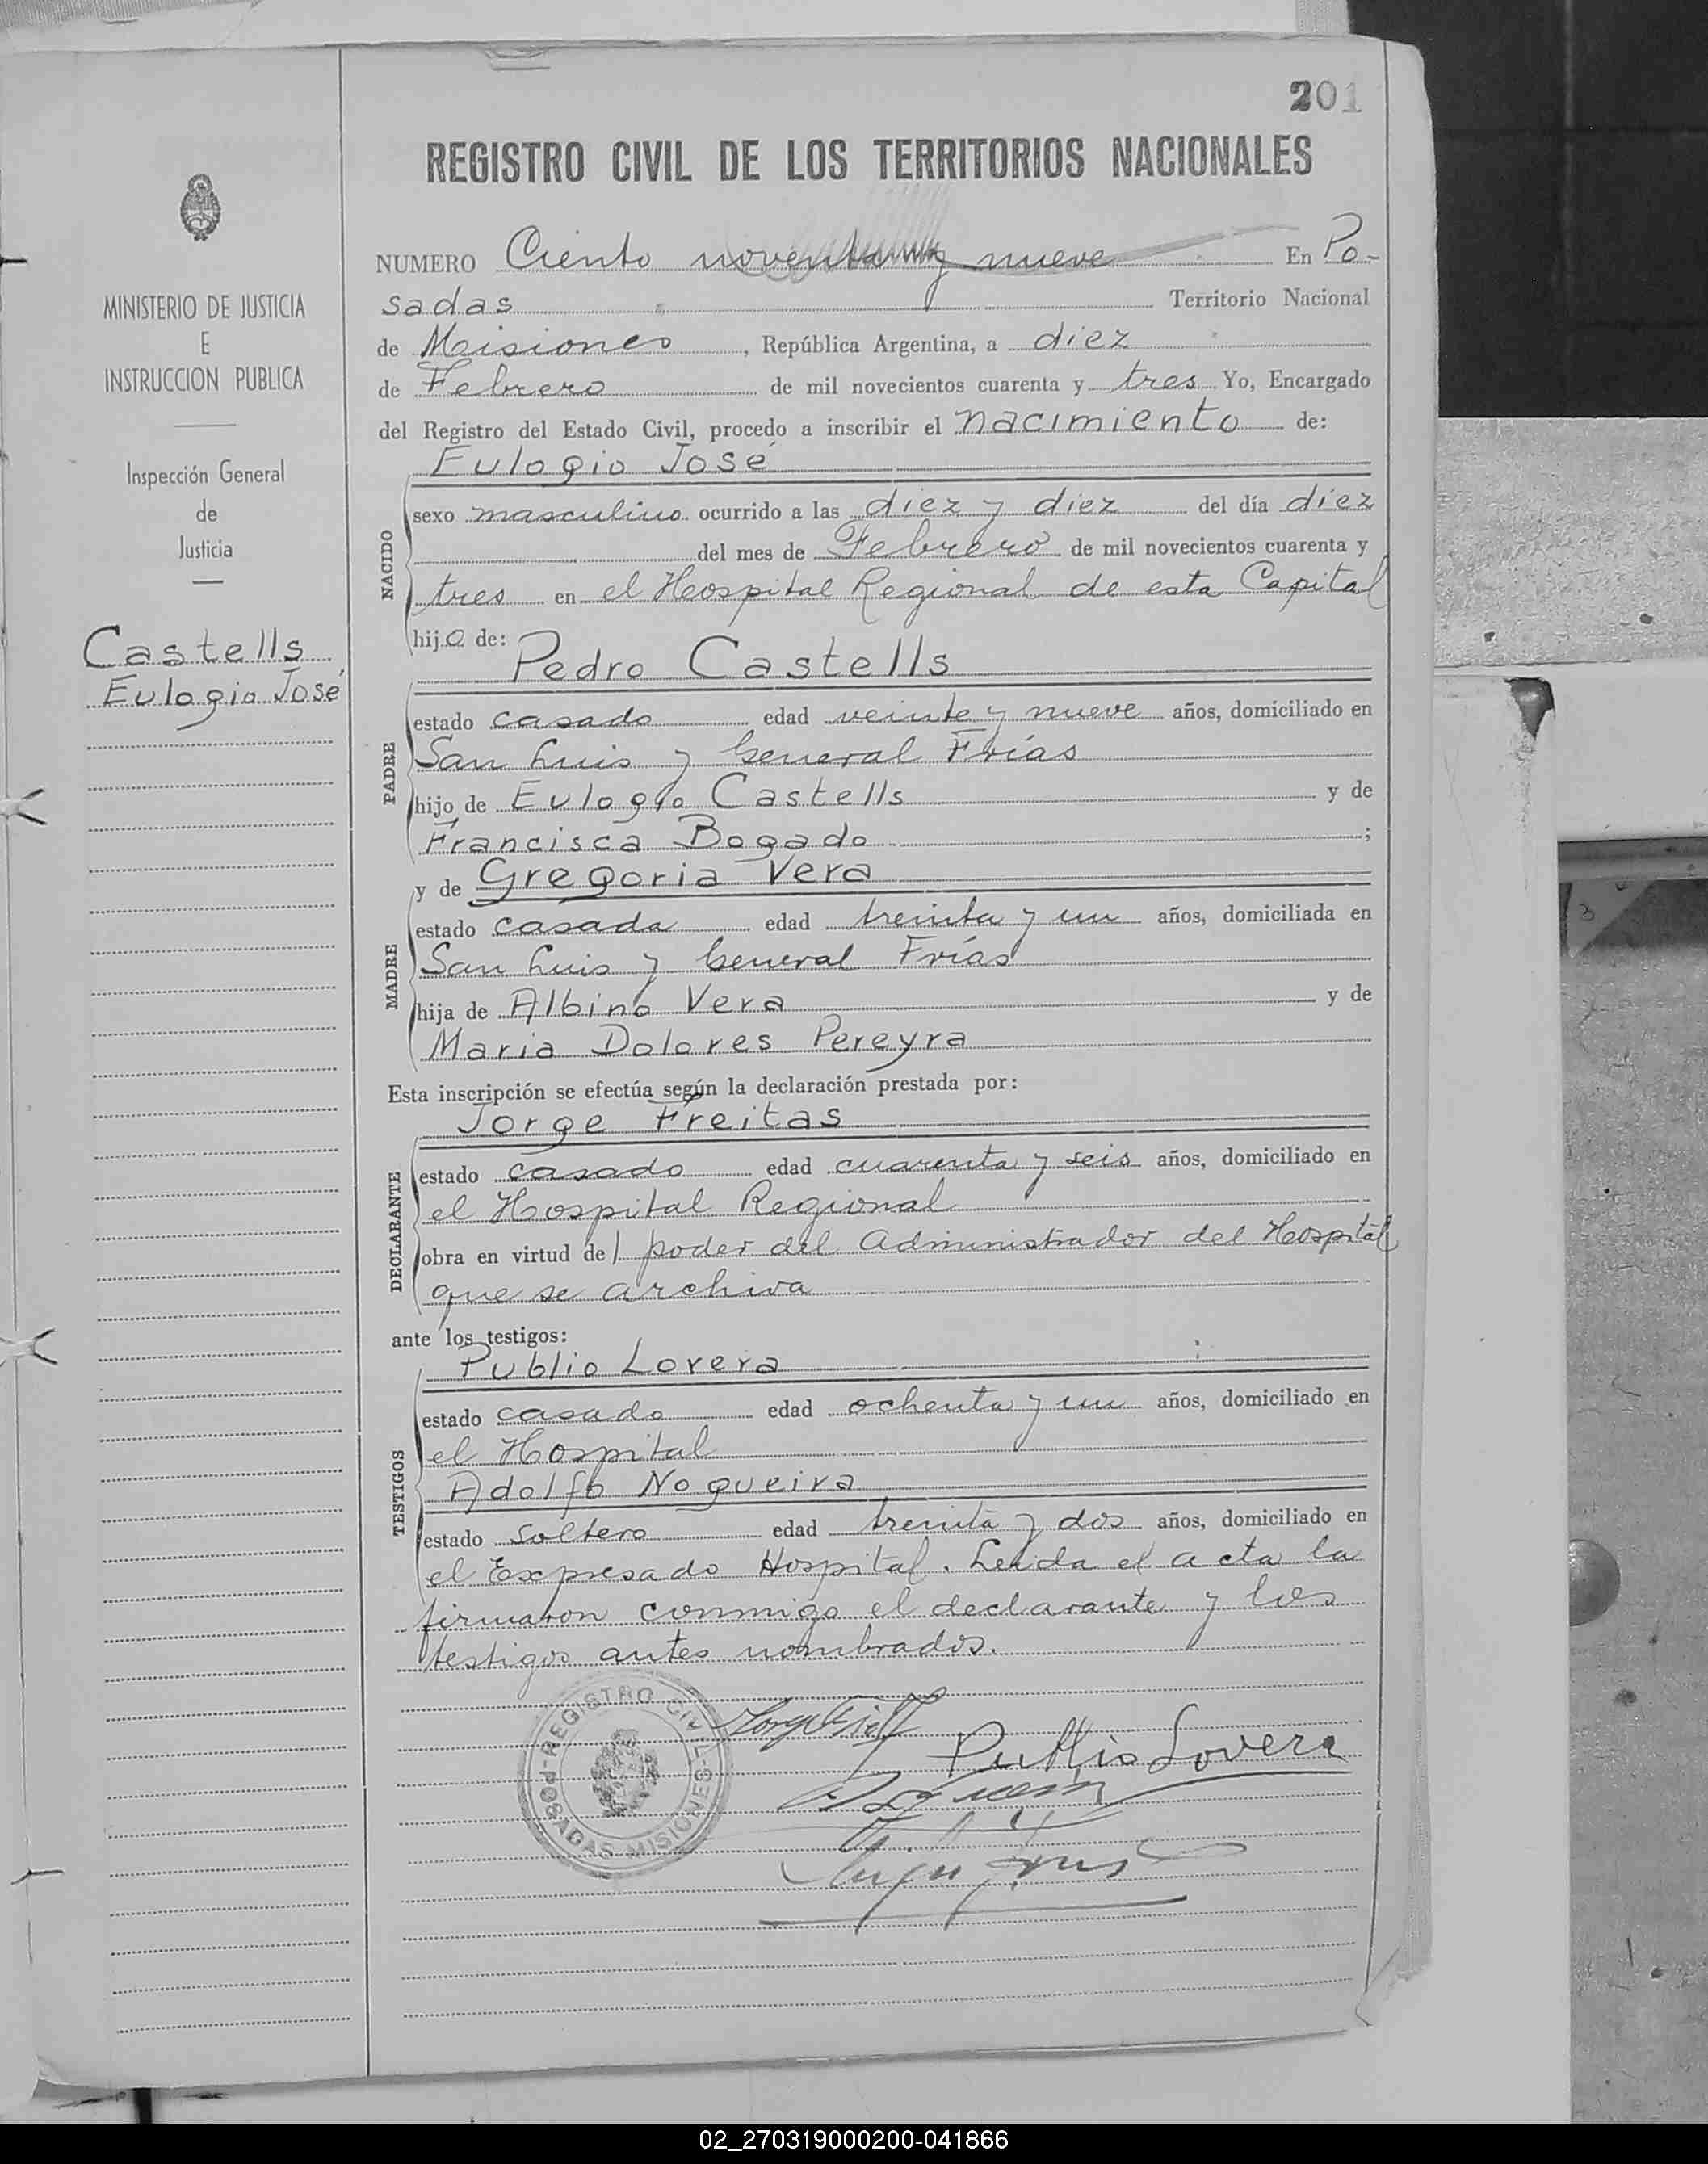 201
REGISTRO CIVIL DE LOS TERRITORIOS NACIONALES
MINISTERIO DE JUSTICIA
E
INSTRUCCION PUBLICA
Inspección General
de
Justicia
Castells
Eulogio José
NUMERO Ciento noventa y nueve En Po-
sadas Territorio Nacional
de Misiones, República Argentina, a diez
de Febrero de mil novecientos cuarenta y tres Yo, Encargado
del Registro del Estado Civil, procedo a inscribir el nacimiento de:
Eulogio José
NACIDO
sexo masculino ocurrido a las diez y diez del día diez
del mes de Febrero de mil novecientos cuarenta y
tres en el Hospital Regional de esta Capital
hijo de:
Pedro Castells
PADRE
estado casado edad veinte y nueve años, domiciliado en
San Luis y General Frías
hijo de Eulogio Castells y de
Francisca Bogado ;
y de Gregoria Vera
MADRE
estado casada edad treinta y un años, domiciliada en
San Luis y General Frías
hija de Albino Vera y de
Maria Dolores Pereyra
Esta inscripción se efectúa según la declaración prestada por:
Jorge Freitas
DECLARANTE
estado casado edad cuarenta y seis años, domiciliado en
el Hospital Regional
obra en virtud del poder del Administrador del Hospital
que se archiva
ante los testigos:
Publio Lovera
TESTIGOS
estado casado edad ochenta y un años, domiciliado en
el Hospital
Adolfo Nogueira
estado soltero edad treinta y dos años, domiciliado en
el Expresado Hospital. Leida el acta la
firmaron conmigo el declarante y los
testigos antes nombrados.
REGISTRO CIVIL
POSADAS MISIONES
Publio Lovera
3
02_270319000200-041866